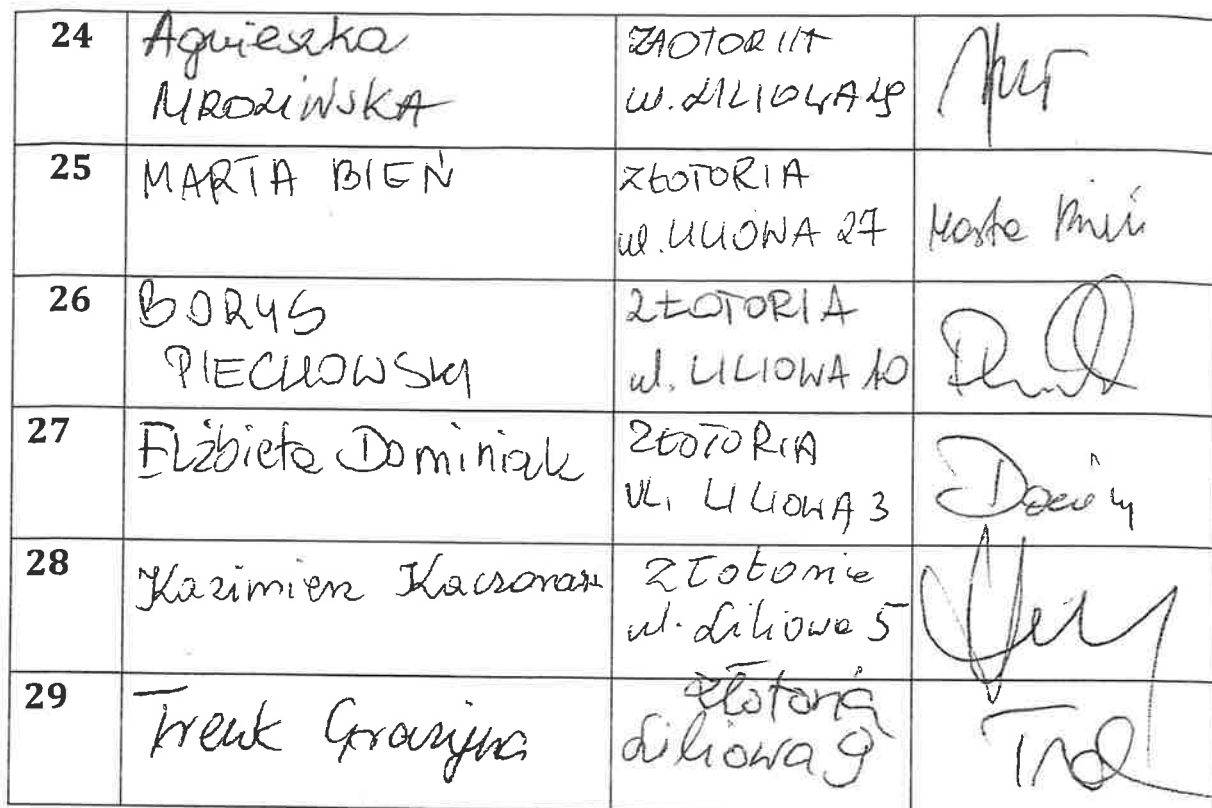 24 Agnieszka ZŁOTORIA
MROZIŃSKA ul. LILIOWA
25 MARTA BIEŃ ZŁOTORIA
ul. LILIOWA 27 Marta Bień
26 BORYS ZŁOTORIA
PIECHOWSKI ul. LILIOWA 10
27 Elżbieta Dominiak ZŁOTORIA
ul. LILIOWA 3
28 Kazimierz Złotoria
ul. Liliowa 5
29 Trenk Grażyna Złotoria
Liliowa 9